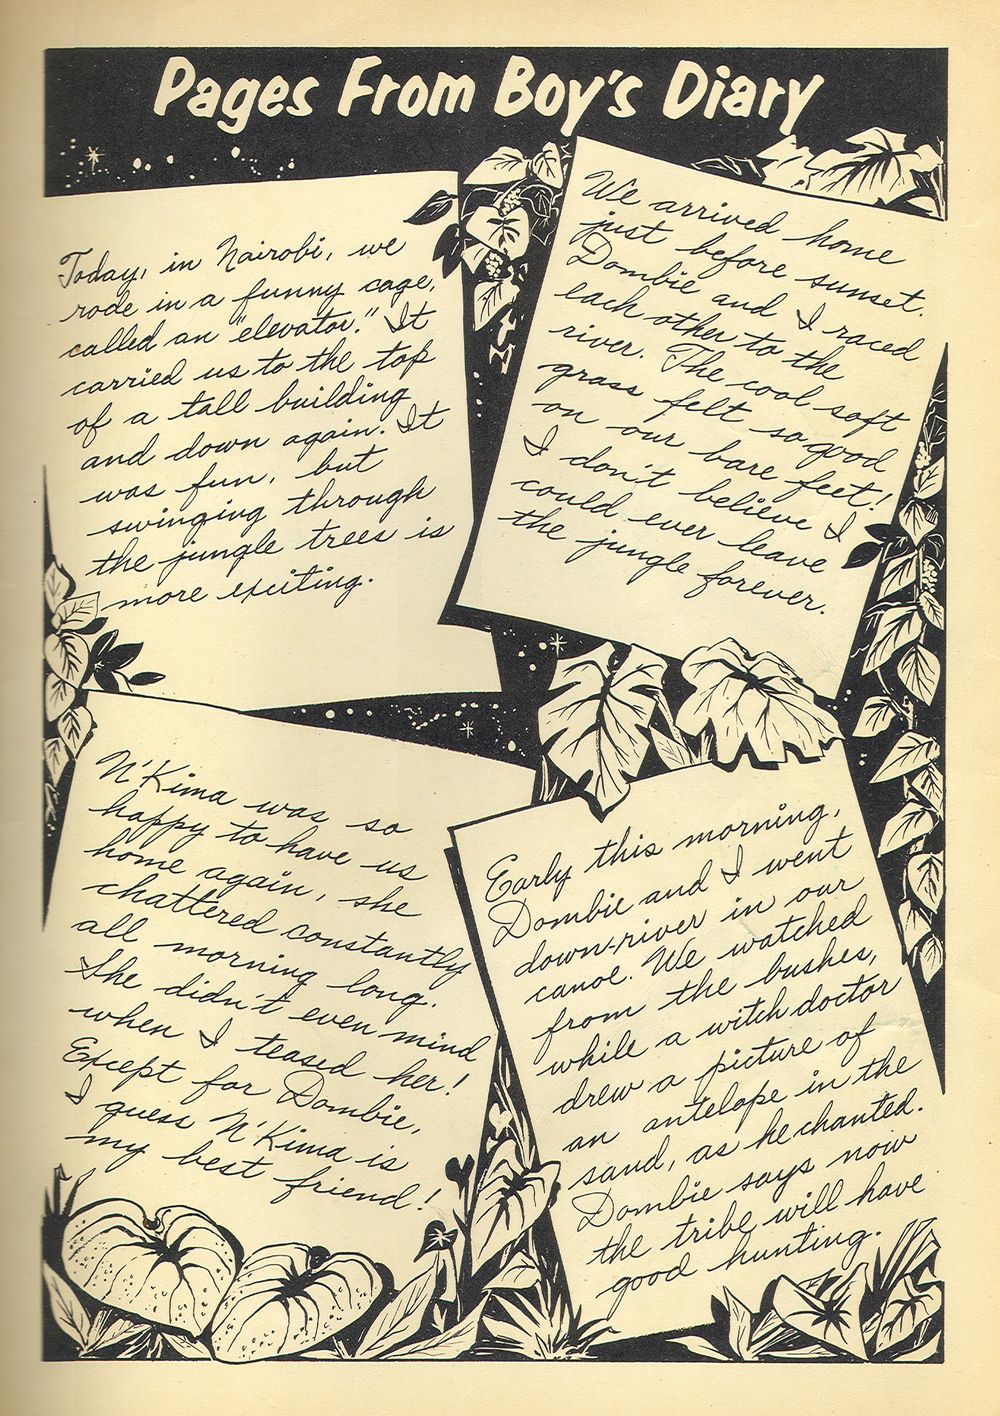 Pages From Boy's Diary
Today, in Nairobi, we
rode in a funny cage,
called an "elevator." It
carried us to the top
of a tall building
and down again. It
was fun, but
swinging through
the jungle trees is
more exciting.
We arrived home
just before sunset.
Dombie and I raced
each other to the
river. The cool soft
grass felt so good
on our bare feet!
I don't believe I
could ever leave
the jungle forever.
N'Kima was so
happy to have us
home again, she
chattered constantly
all morning long.
She didn't even mind
when I teased her!
Except for Dombie,
I guess N'Kima is
my best friend!
Early this morning,
Dombie and I went
down-river in our
canoe. We watched
from the bushes,
while a witch doctor
drew a picture of
an antelope in the
sand, as he chanted.
Dombie says now
the tribe will have
good hunting.